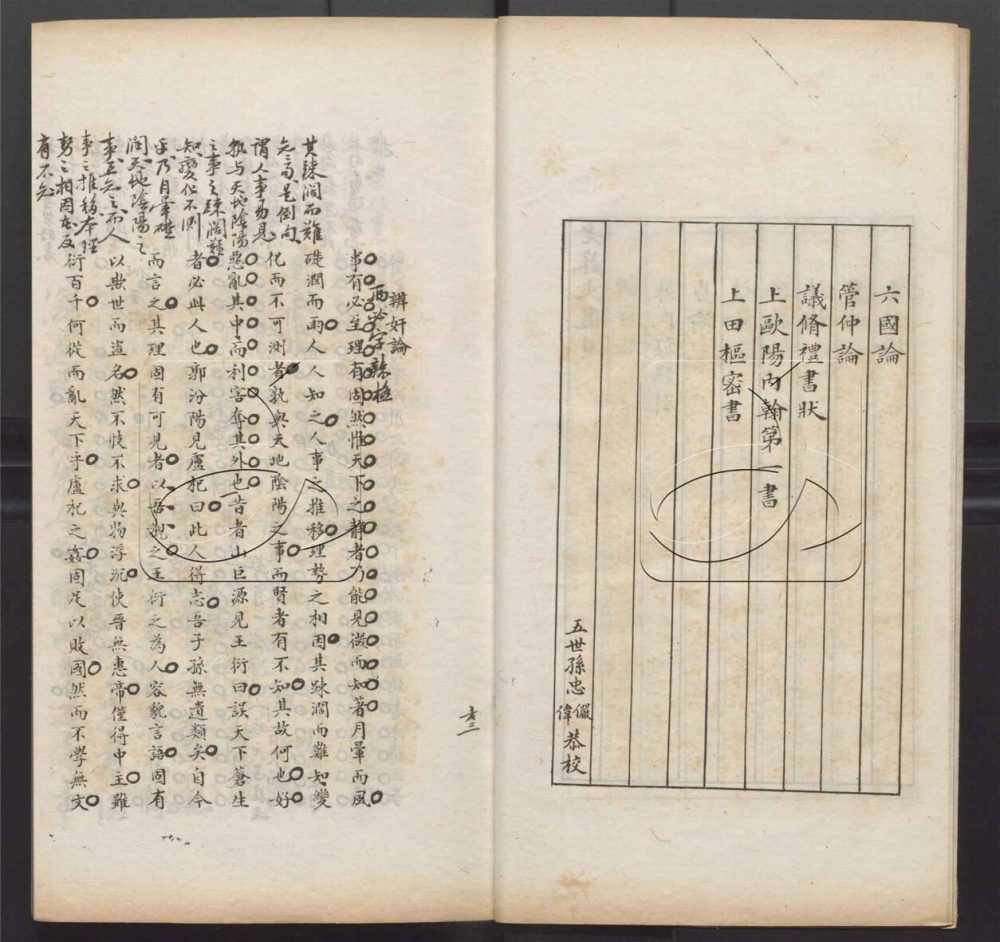 六國論
管仲論
議脩禮書狀
上歐陽內翰第一書
上田樞密書
五世孫忠
偉
恭校
其踈濶而難
是倒句
謂人事易見
孰与天地陰陽
之事之踈濶難
知變化不測
乎乃月暈礎
潤天地陰陽之
事知之而人
事之推移本理
勢之相因者反
有不知
辨奸論
事有必至理有固然惟天下之靜者乃能見微而知著月暈而風
礎潤而雨人人知之人事之推移理勢之相因其踈濶而難知變
化而不可測者孰與天地陰陽之事而賢者有不知其故何也好
惡亂其中而利害奪其外也昔者山巨源見王衍曰誤天下蒼生
者必此人也郭汾陽見盧杞曰此人得志吾子孫無遺類矣自今
而言之其理固有可見者以吾觀之王衍之為人容貌言語固有
以欺世而盜名然不忮不求與物浮沉使晉無惠帝僅得中主雖
衍百千何從而亂天下乎盧杞之姦固足以敗國然而不學無文